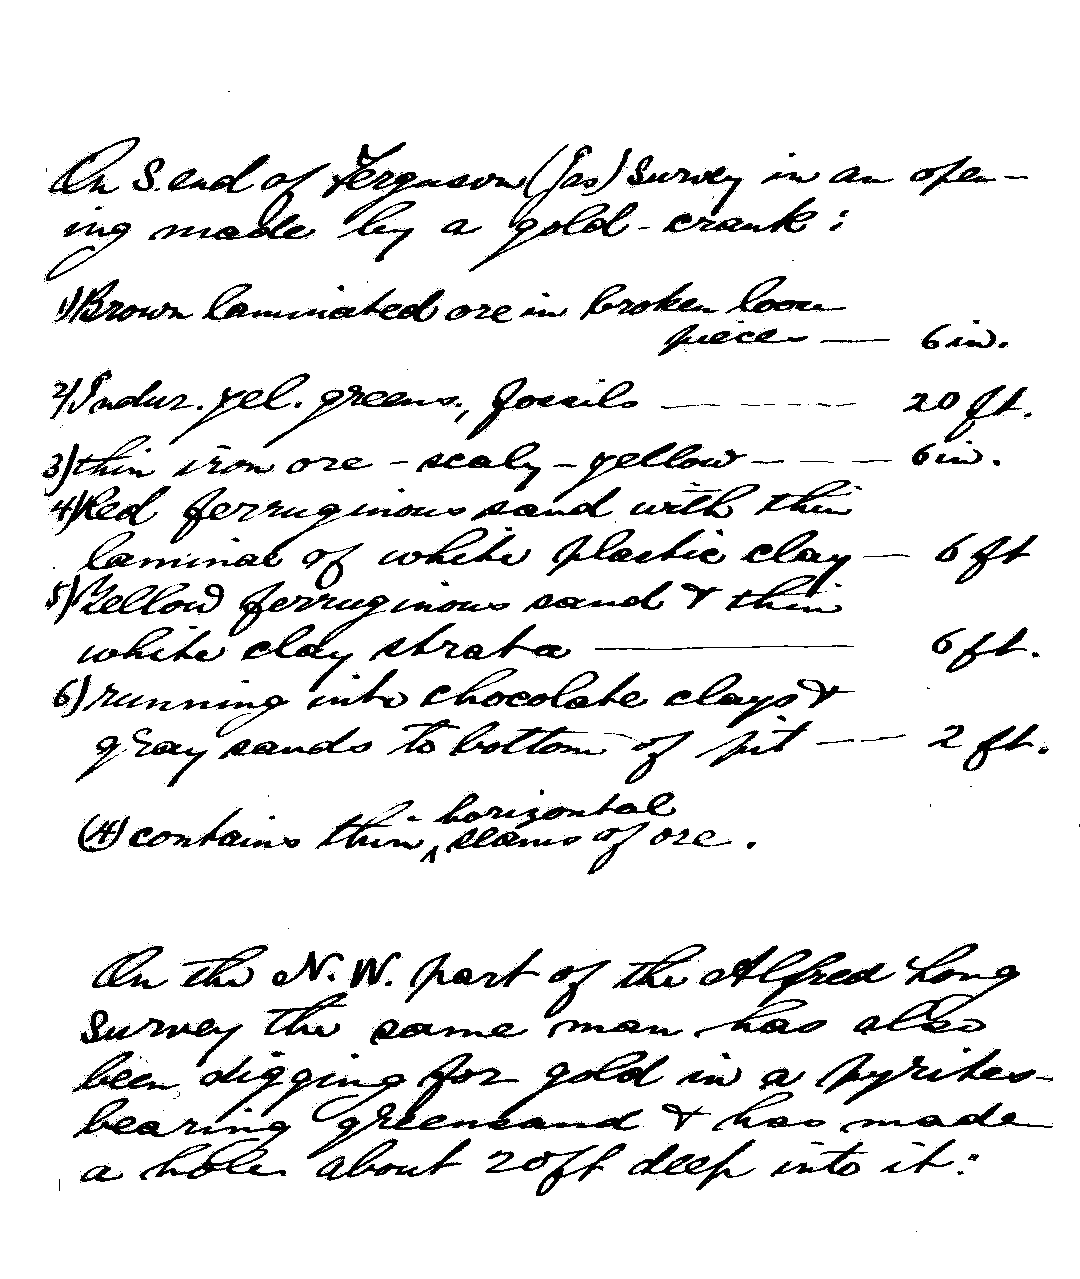 On S. end of Ferguson (Jas) Survey in an open-
ing made by a gold-crank:
1) Brown laminated ore in broken loose
pieces — 6 in.
2) Indur. yel. greens., fossils — — — — 20 ft.
3) thin iron ore - scaly - yellow - - - - 6 in.
4) Red ferruginous sand with thin
laminae of white plastic clay — 6 ft
5) Yellow ferruginous sand & thin
white clay strata ——— 6 ft.
6) running into chocolate clays &
gray sands to bottom of pit — — 2 ft.
horizontal
(4) contains thin ^ seams of ore.
On the N.W. part of the Alfred Long
Survey the same man has also
been digging for gold in a pyrites-
bearing greensand & has made
a hole about 20 ft deep into it: